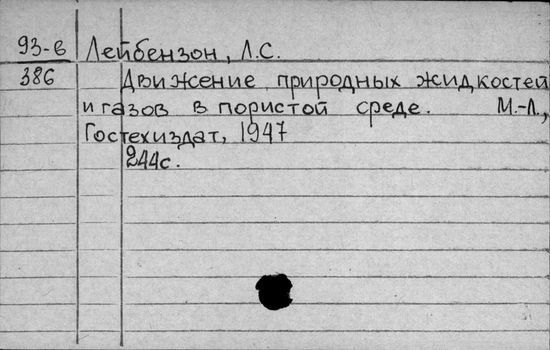 93-6 Лейбензон, Л.С.
386 Движение природных жидкостей
и газов в пористой среде. М.-Л.,
Гостехиздат, 1947
244с.